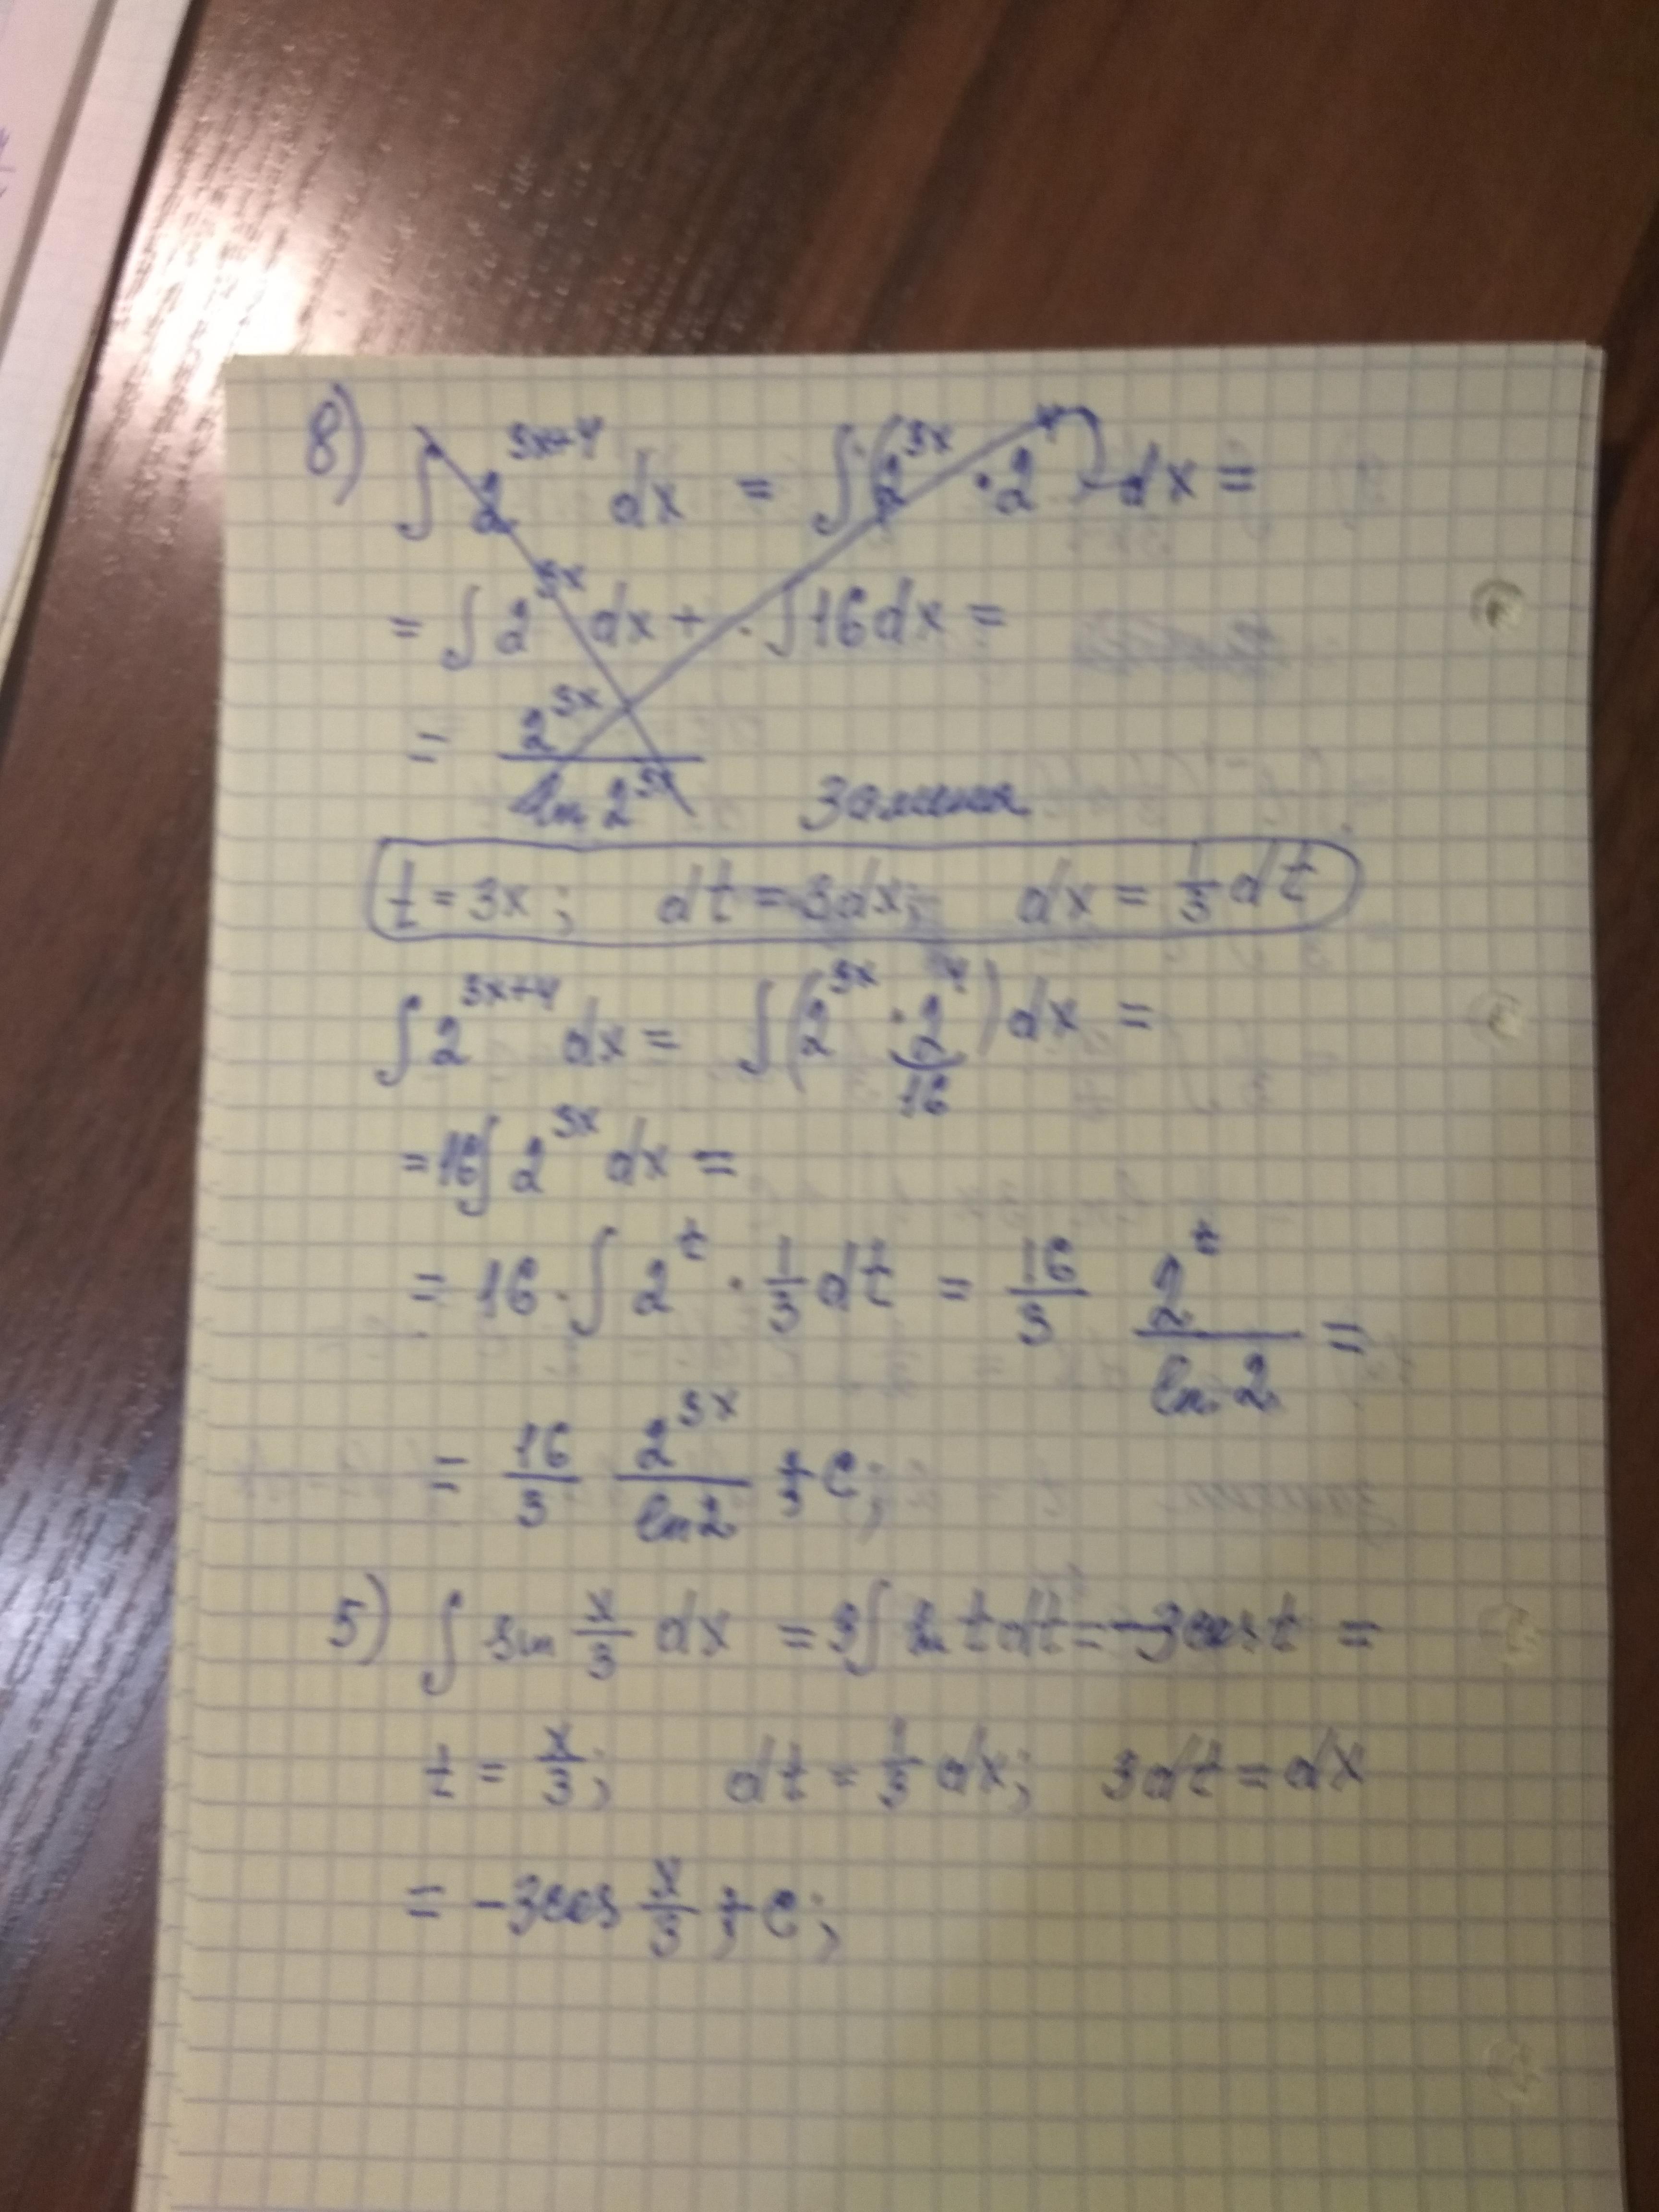 8) ∫ 2^{3x+4} dx = ∫(2^{3x} · 2^4) dx =
= ∫ 2^{3x} dx + · ∫ 16 dx =
= \frac{2^{3x}}{ln 2^{3x}}
Замена
t = 3x; dt = 3dx; dx = \frac{1}{3} dt
∫ 2^{3x+4} dx = ∫(2^{3x} · 2^4) dx =
16
= 16∫ 2^{3x} dx =
= 16 · ∫ 2^t · \frac{1}{3} dt = \frac{16}{3} \frac{2^t}{ln 2} =
= \frac{16}{3} \frac{2^{3x}}{ln 2} + C;
5) ∫ sin \frac{x}{3} dx = 3∫ sin t dt = -3cos t =
t = \frac{x}{3}; dt = \frac{1}{3} dx; 3dt = dx
= -3cos \frac{x}{3} + C;